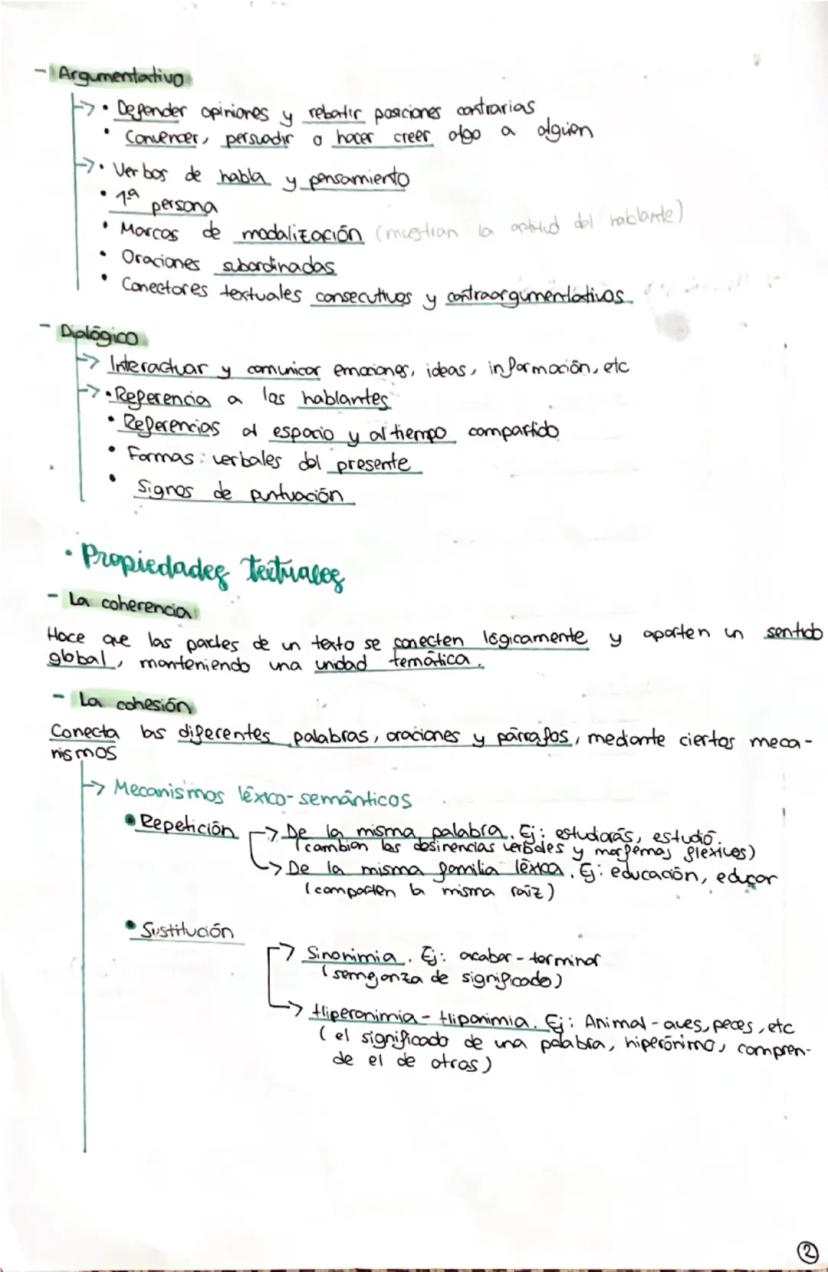 - Argumentativo
→ • Defender opiniones y rebatir posiciones contrarias
• Convencer, persuadir o hacer creer algo a alguien
→ • Verbos de habla y pensamiento
• 1ª persona
• Marcas de modalización (muestran la actitud del hablante)
• Oraciones subordinadas
• Conectores textuales consecutivos y contraargumentativos
- Dialógico
→ Interactuar y comunicar emociones, ideas, información, etc
→ • Referencia a los hablantes
• Referencias al espacio y al tiempo compartido
• Formas verbales del presente
• Signos de puntuación
• Propiedades textuales
- La coherencia
Hace que las partes de un texto se conecten lógicamente y aporten un sentido
global, manteniendo una unidad temática.
- La cohesión
Conecta las diferentes palabras, oraciones y párrafos, mediante ciertos meca-
nismos
→ Mecanismos léxico-semánticos
• Repetición → De la misma palabra. Ej: estudiarás, estudió.
(cambian las desinencias verbales y morfemas flexivos)
→ De la misma familia léxica. Ej: educación, educar
(comparten la misma raíz)
• Sustitución
→ Sinonimia. Ej: acabar - terminar
(semejanza de significado)
→ Hiperonimia - Hiponimia. Ej: Animal - aves, peces, etc
(el significado de una palabra, hiperónimo, compren-
de el de otras)
2